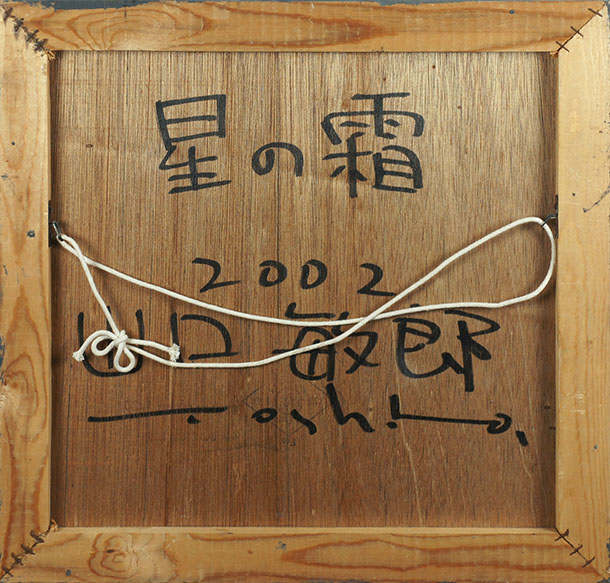 星の霜
2002
山口 敏郎
Toshiro.